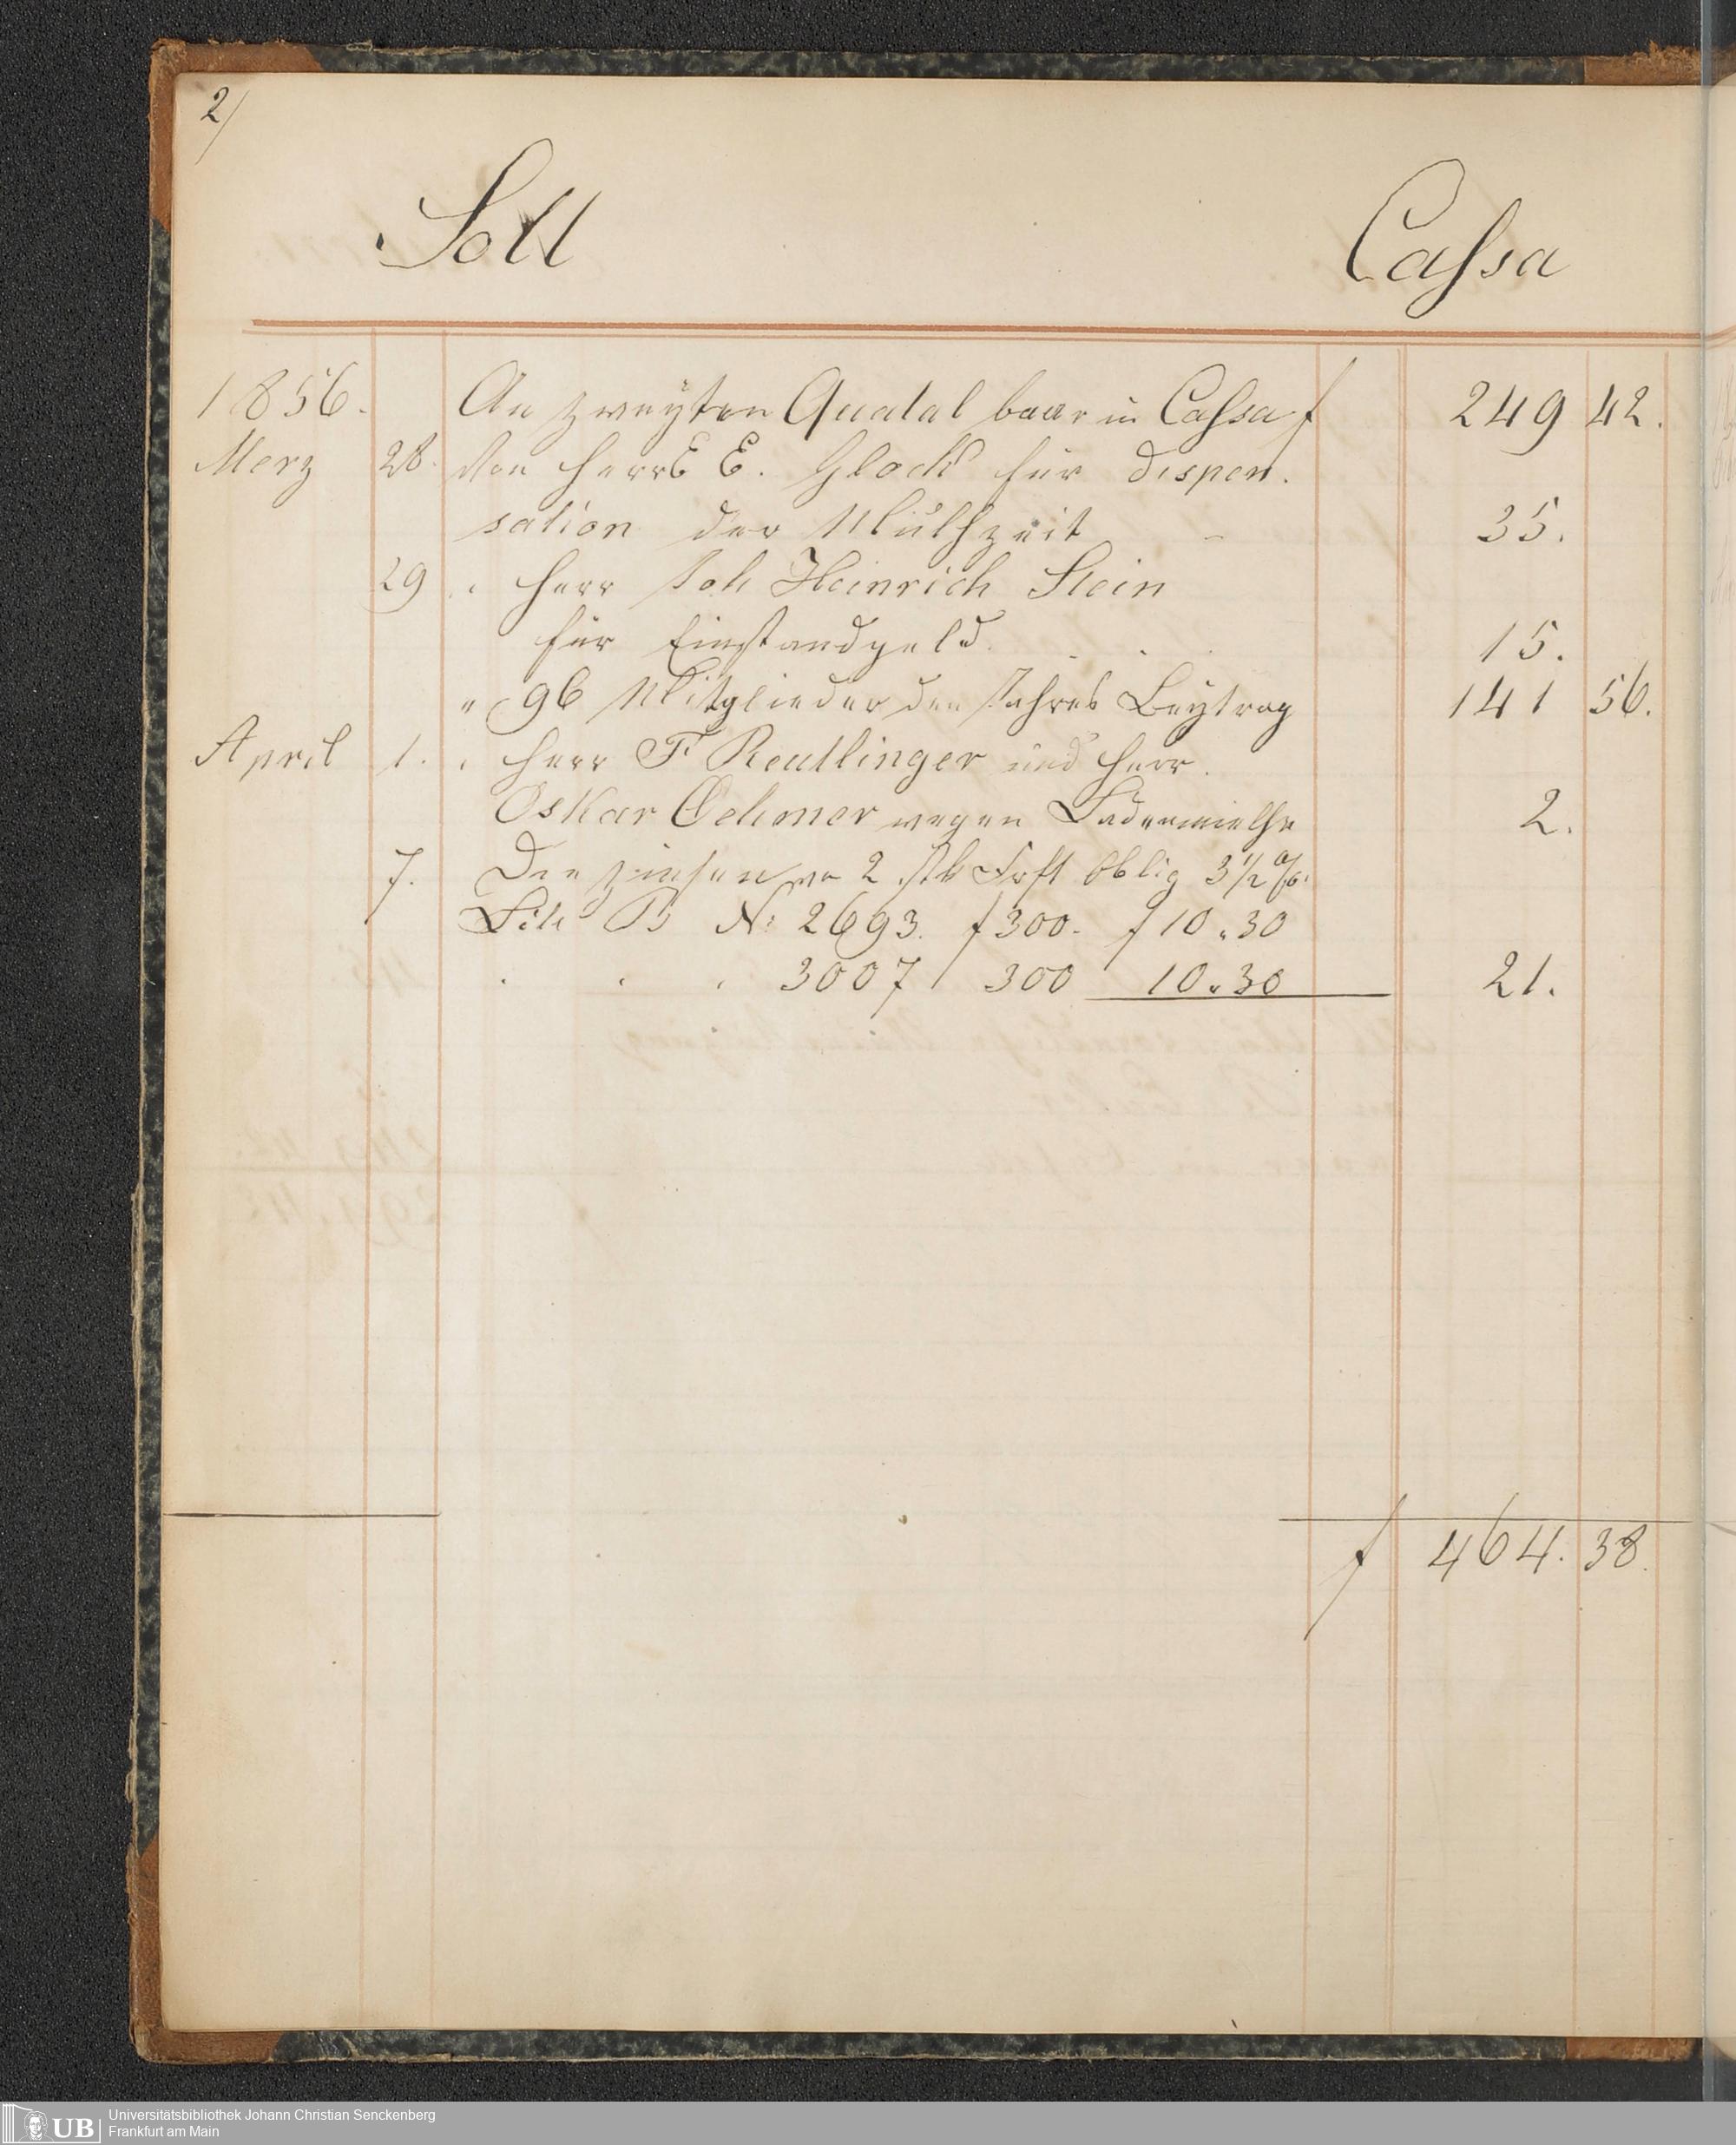 2/
Soll Cassa
1856. An zweyten Quatal baar in Cassa f 249 42.
Merz 28. Von Herr E. Glock für dispen-
sation der Muthzeit - 35.
29 " Herr Joh Heinrich Stein
für Einstandgeld. 15.
" 96 Mitglieder den Jahres Beytrag 141 56.
April 1. " Herr F Reutlinger und Herr
Oskar Oehmer wegen Ladenmiethe 2.
7. Die Zinsen von 2 Stk Frft Oblig 3½ %
Litt B No: 2693. f 300.- f 10 " 30
" " " 3007 300 10 " 30 21.
f 464. 38.
UB Universitätsbibliothek Johann Christian Senckenberg
Frankfurt am Main